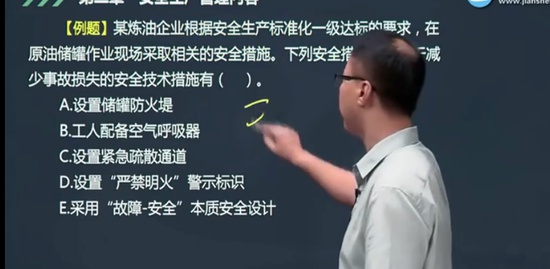 第二章 安全生产管理内容
www.jianshe
【例题】某炼油企业根据安全生产标准化一级达标的要求，在
原油储罐作业现场采取相关的安全措施。下列安全措
减
少事故损失的安全技术措施有（ ）。
A.设置储罐防火堤
B.工人配备空气呼吸器
C.设置紧急疏散通道
D.设置“严禁明火”警示标识
E.采用“故障-安全”本质安全设计